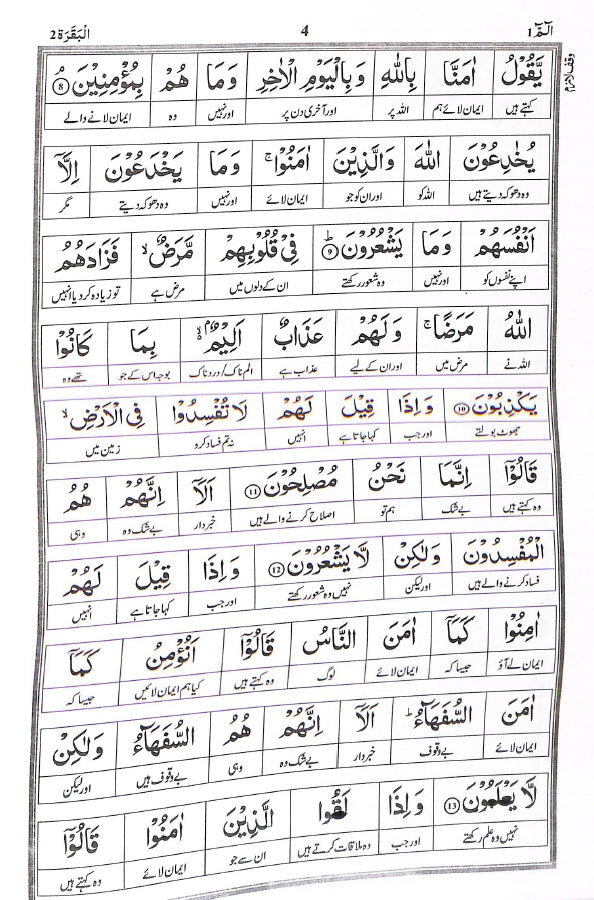 الٓمّٓ 1 4 الْبَقَرَة 2
وقف لازم
يَّقُوْلُ اٰمَنَّا بِاللّٰهِ وَبِالْيَوْمِ الْاٰخِرِ وَمَا هُمْ بِمُؤْمِنِيْنَ ۘ ﴿8﴾
کہتے ہیں ایمان لائے ہم اللہ پر اور آخری دن پر اور نہیں وہ ایمان لانے والے
يُخٰدِعُوْنَ اللّٰهَ وَالَّذِيْنَ اٰمَنُوْا ۚ وَمَا يَخْدَعُوْنَ اِلَّآ
وہ دھوکہ دیتے ہیں اللہ کو اور ان کو جو ایمان لائے اور نہیں وہ دھوکہ دیتے مگر
اَنْفُسَهُمْ وَمَا يَشْعُرُوْنَ ؕ ﴿9﴾ فِيْ قُلُوْبِهِمْ مَّرَضٌ ۙ فَزَادَهُمُ
اپنے نفسوں کو اور نہیں وہ شعور رکھتے ان کے دلوں میں مرض ہے تو زیادہ کردیا انہیں
اللّٰهُ مَرَضًا ۚ وَلَهُمْ عَذَابٌ اَلِيْمٌ ۙ بِمَا كَانُوْا
اللہ نے مرض میں اور ان کے لیے عذاب ہے الم ناک/دردناک بوجہ اس کے جو تھے وہ
يَكْذِبُوْنَ ﴿10﴾ وَاِذَا قِيْلَ لَهُمْ لَا تُفْسِدُوْا فِي الْاَرْضِ ۙ
جھوٹ بولتے اور جب کہا جاتا ہے انہیں نہ تم فساد کرو زمین میں
قَالُوْٓا اِنَّمَا نَحْنُ مُصْلِحُوْنَ ﴿11﴾ اَلَآ اِنَّهُمْ هُمُ
وہ کہتے ہیں بے شک ہم تو اصلاح کرنے والے ہیں خبردار بے شک وہ وہی
الْمُفْسِدُوْنَ وَلٰكِنْ لَّا يَشْعُرُوْنَ ﴿12﴾ وَاِذَا قِيْلَ لَهُمْ
فساد کرنے والے ہیں اور لیکن نہیں وہ شعور رکھتے اور جب کہا جاتا ہے انہیں
اٰمِنُوْا كَمَآ اٰمَنَ النَّاسُ قَالُوْٓا اَنُؤْمِنُ كَمَآ
ایمان لے آؤ جیسا کہ ایمان لائے لوگ وہ کہتے ہیں کیا ہم ایمان لائیں جیسا کہ
اٰمَنَ السُّفَهَآءُ ؕ اَلَآ اِنَّهُمْ هُمُ السُّفَهَآءُ وَلٰكِنْ
ایمان لائے بے وقوف خبردار بے شک وہ وہی بے وقوف ہیں اور لیکن
لَّا يَعْلَمُوْنَ ﴿13﴾ وَاِذَا لَقُوا الَّذِيْنَ اٰمَنُوْا قَالُوْٓا
نہیں وہ علم رکھتے اور جب وہ ملاقات کرتے ہیں ان سے جو ایمان لائے وہ کہتے ہیں